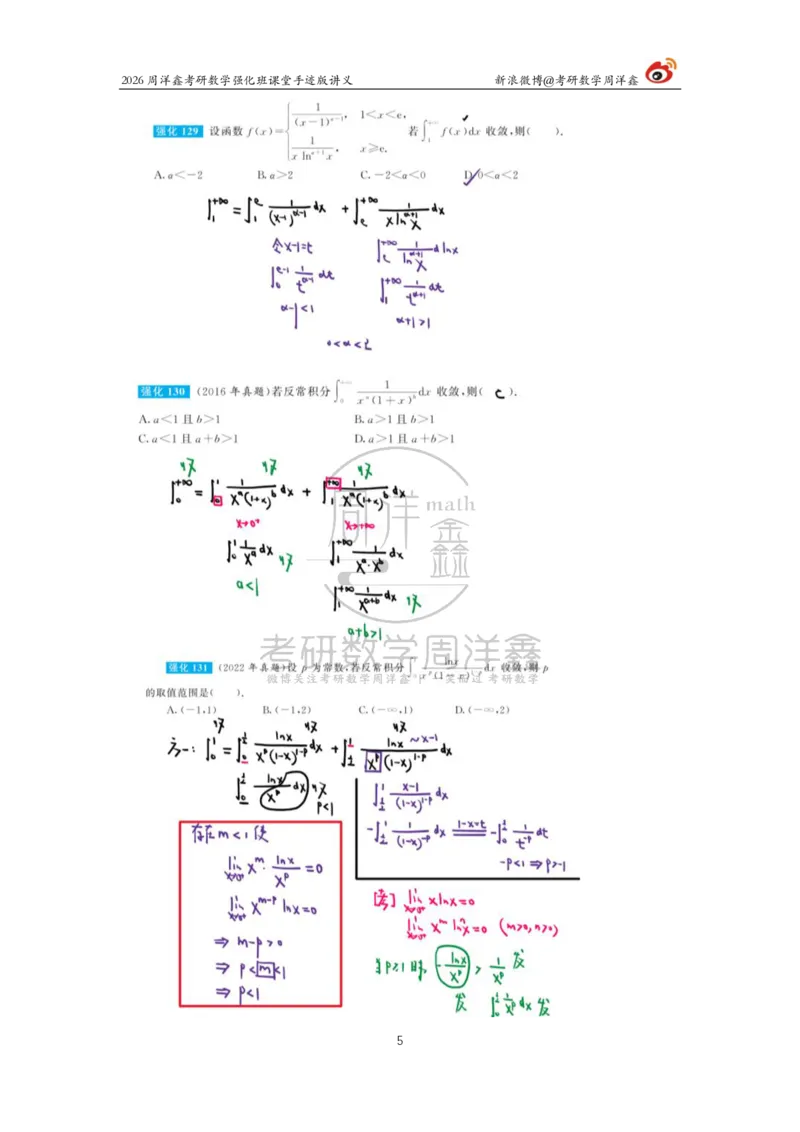 2026 周洋鑫考研数学强化班课堂手迹版讲义 新浪微博@考研数学周洋鑫
强化 129 设函数 f(x)={ 1/(x-1)^{α-1}, 1<x<e, 1/(x ln^{α+1} x), x≥e. 若∫_1^{+∞} f(x)dx 收敛,则( ).
A. α<-2 B. α>2 C. -2<α<0 D. 0<α<2
∫_1^{+∞} = ∫_1^e 1/(x-1)^{α-1} dx + ∫_e^{+∞} 1/(x ln^{α+1} x) dx
令x-1=t ∫_e^{+∞} 1/(ln^{α+1} x) d lnx
∫_0^{e-1} 1/t^{α-1} dt ∫_1^{+∞} 1/t^{α+1} dt
α-1<1 α+1>1
0<α<2
强化 130 (2016 年真题)若反常积分∫_0^{+∞} 1/(x^a(1+x)^b) dx 收敛,则( C ).
A. a<1 且 b>1 B. a>1 且 b>1
C. a<1 且 a+b>1 D. a>1 且 a+b>1
收 收 收
∫_0^{+∞} = ∫_0^1 1/(x^a(1+x)^b) dx + ∫_1^{+∞} 1/(x^a(1+x)^b) dx
x→0⁺ x→+∞
∫_0^1 1/x^a dx 收 ∫_1^{+∞} 1/(x^a·x^b) dx
a<1 ∫_1^{+∞} 1/x^{a+b} dx 收
a+b>1
周洋 math 鑫
考研数学周洋鑫
强化 131 (2022 年真题)设 p 为常数,若反常积分∫_0^1 lnx/(x^p(1-x)^{1-p}) dx 收敛,则 p
微博关注考研数学周洋鑫 考研数学
的取值范围是( ).
A. (-1,1) B. (-1,2) C. (-∞,1) D. (-∞,2)
收 收 收
方一: ∫_0^1 = ∫_0^{1/2} lnx/(x^p(1-x)^{1-p}) dx + ∫_{1/2}^1 lnx~x-1/(x^p(1-x)^{1-p}) dx
∫_0^{1/2} lnx/x^p dx 收 p<1
∫_{1/2}^1 (x-1)/(1-x)^{1-p} dx
-∫_{1/2}^1 1/(1-x)^{-p} dx 1-x=t -∫_0^{1/2} 1/t^{-p} dt
-p<1 ⇒ p>-1
存在m<1使
lim_{x→0⁺} x^m · lnx/x^p = 0
lim_{x→0⁺} x^{m-p} lnx=0
⇒ m-p>0
⇒ p<m<1
⇒ p<1
lim_{x→0⁺} xlnx=0
lim_{x→0⁺} x^m ln^n x=0 (m>0,n>0)
当p≥1时, -lnx/x^p > 1/x^p 发
发 ∫_0^{1/2} 1/x^p dx 发
5